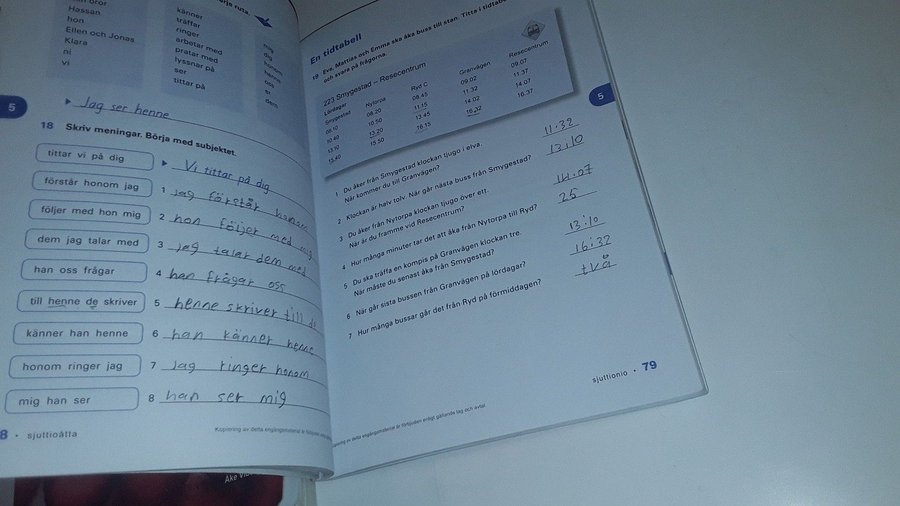 Hassan
hon
Ellen och Jonas
Klara
ni
vi
känner
träffar
ringer
arbetar med
pratar med
lyssnar på
ser
tittar på
mig
dig
honom
henne
oss
er
dem
Jag ser henne
5
18 Skriv meningar. Börja med subjektet.
tittar vi på dig
Vi tittar på dig
förstår honom jag
1 jag förstår honom
följer med hon mig
2 hon följer med mig
dem jag talar med
3 jag talar dem med
han oss frågar
4 han frågar oss
till henne de skriver
5 henne skriver till de
känner han henne
6 han känner henne
honom ringer jag
7 jag ringer honom
mig han ser
8 han ser mig
8 • sjuttioåtta
Kopiering av detta engångsmaterial är förbjuden
En tidtabell
19 Eva, Mattias och Emma ska åka buss till stan. Titta i
och svara på frågorna.
223 Smygestad – Resecentrum
Lördagar
Smygestad Nytorpa Ryd C Granvägen Resecentrum
08.10 08.20 08.45 09.02 09.07
10.40 10.50 11.15 11.32 11.37
13.10 13.20 13.45 14.02 14.07
15.40 15.50 16.15 16.32 16.37
5
1 Du åker från Smygestad klockan tjugo i elva.
När kommer du till Granvägen?
11.32
2 Klockan är halv tolv. När går nästa buss från Smygestad?
13:10
3 Du åker från Nytorpa klockan tjugo över ett.
När är du framme vid Resecentrum?
14.07
4 Hur många minuter tar det att åka från Nytorpa till Ryd?
25
5 Du ska träffa en kompis på Granvägen klockan tre.
När måste du senast åka från Smygestad?
13:10
6 När går sista bussen från Granvägen på lördagar?
16:32
7 Hur många bussar går det från Ryd på förmiddagen?
två
sjuttionio • 79
Kopiering av detta engångsmaterial är förbjuden enligt gällande lag och avtal.
Åke